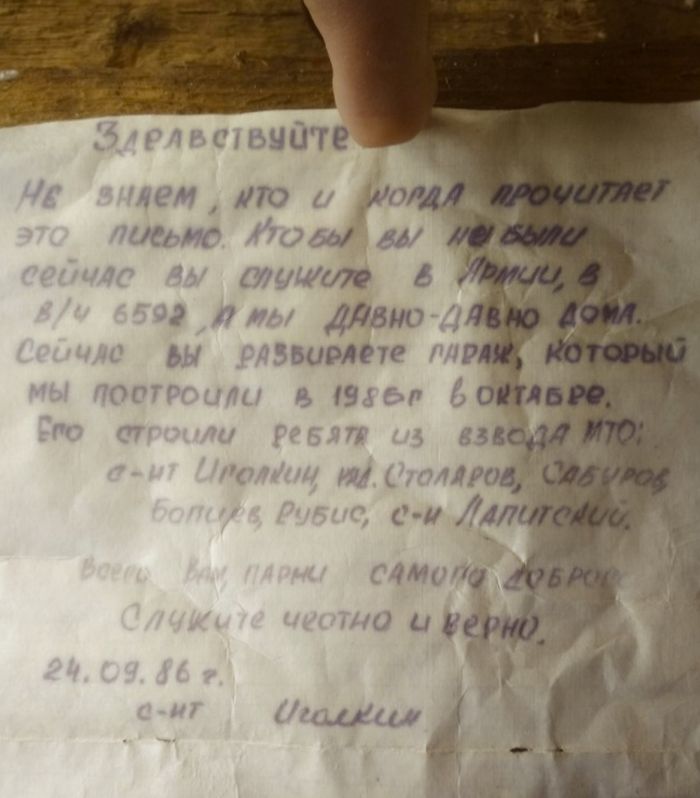 Здравствуйте
Не знаем, кто и когда прочитает
это письмо. Кто бы вы не были
сейчас вы служите в Армии, в
в/ч 6592, а мы давно-давно дома.
Сейчас вы разбираете гараж, который
мы построили в 1986г в октябре.
Его строили ребята из взвода МТО:
с-нт Иголкин, мл. Столяров, Сабуров,
Рубис, с-н Лапитский.
Всего Вам, парни самого доброго
Служите честно и верно.
24.09.86 г.
с-нт Иголкин